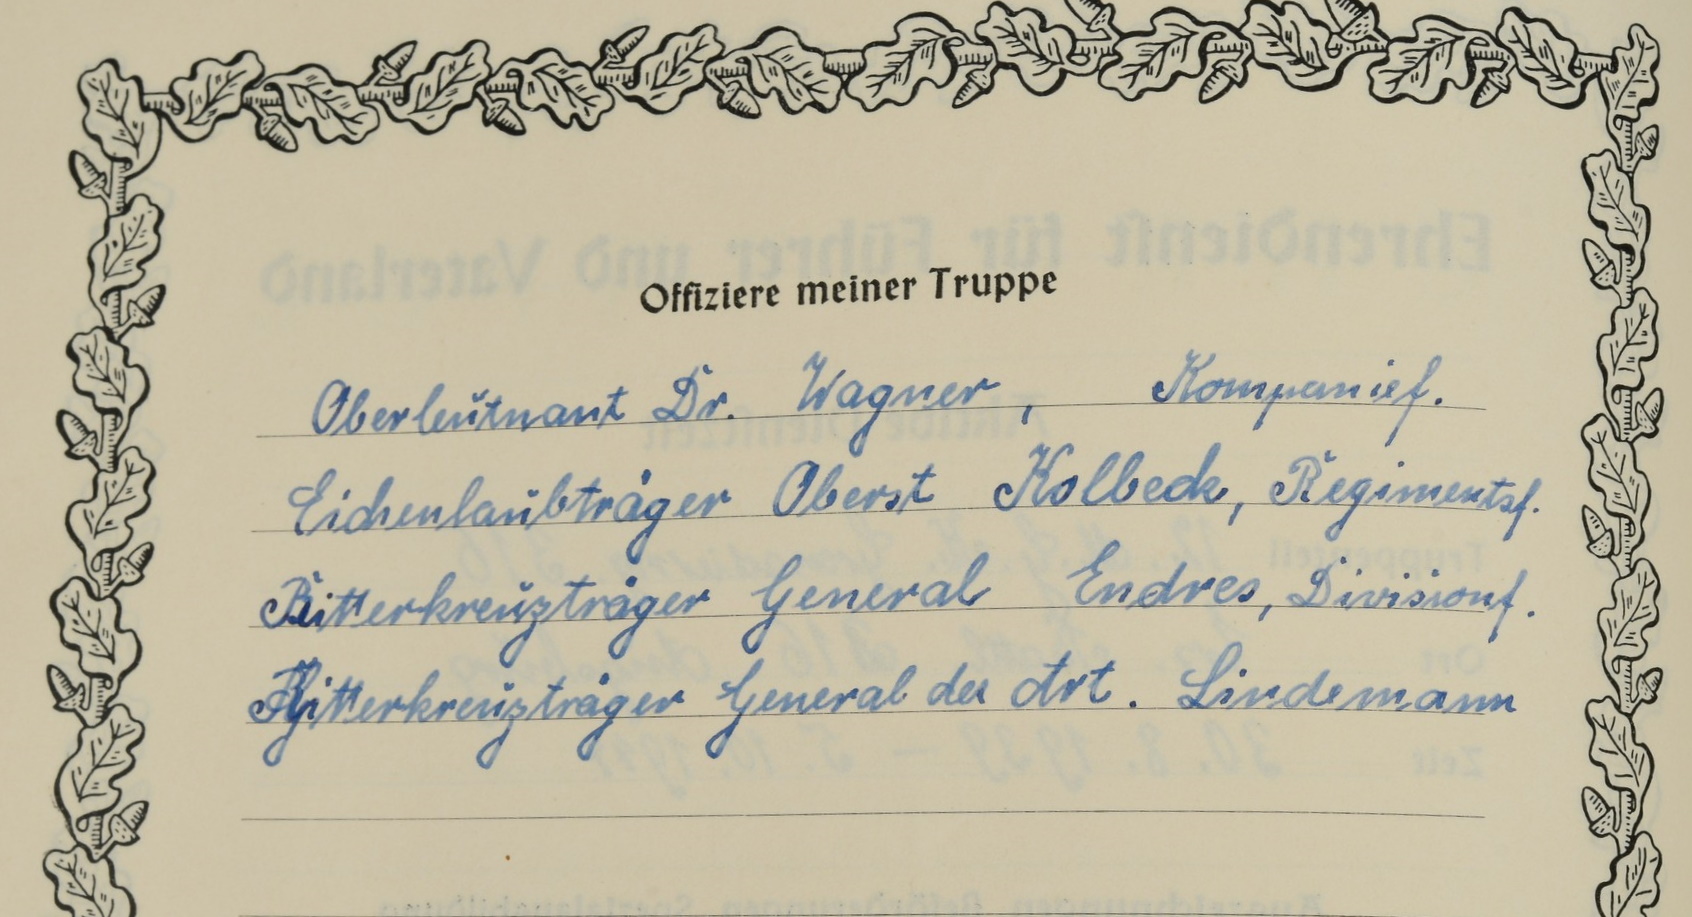 Offiziere meiner Truppe
Oberleutnant Dr. Wagner, Kompanief.
Eichenlaubträger Oberst Kolbeck, Regimentsf.
Ritterkreuzträger General Endres, Divisionf.
Ritterkreuzträger General der Art. Lindemann